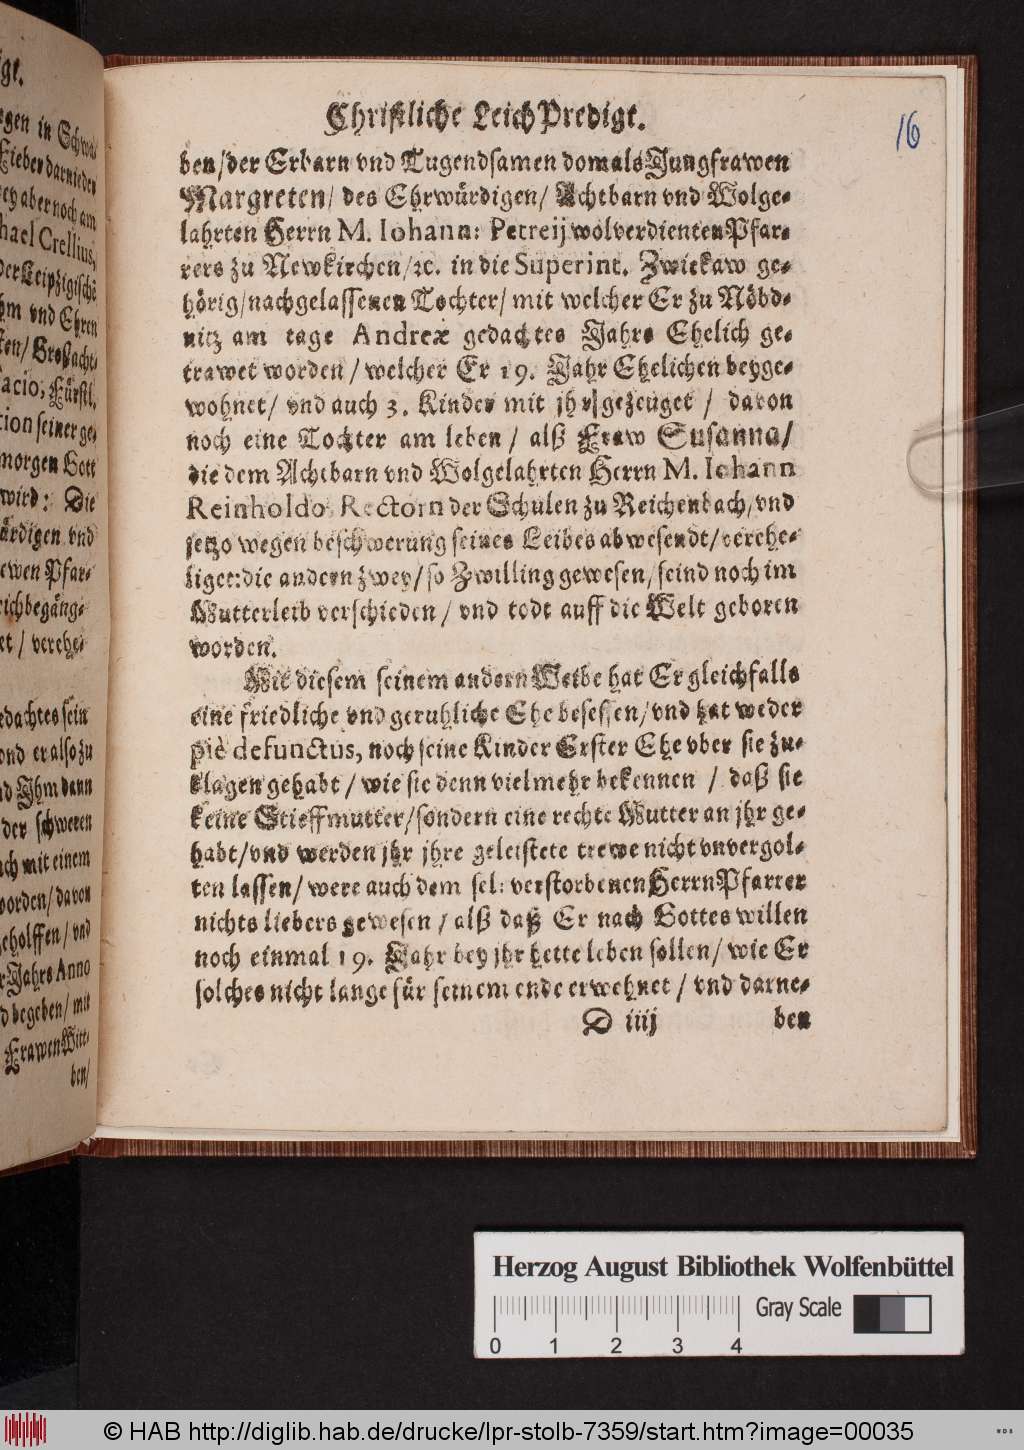 igt.
egen in Schwa-
Fieber darnieder
ey aber noch am
hael Crellius,
der Leipzigische
hm vnd Ehren
ten/ Großacht-
acio, Fürstl.
tion seiner ge-
morgen Gott
wird: Die
ürdigen vnd
ewen Pfar-
eichbegäng-
et / verehe-
edachtes sein
ond er also zu
nd Jhm dann
der schweren
uch mit einem
worden/ davon
geholffen/ vnd
r Jahrs Anno
d begeben/ mit
Frawen Witt-
ben/
Christliche Leich Predigt.
16
ben/der Erbarn vnd Tugendsamen domals Jungfrawen
Margreten/ des Ehrwürdigen/ Achtbarn vnd Wolge-
lahrten Herrn M. Iohann: Petreij wolverdienten Pfar-
rers zu Newkirchen/ꝛc. in die Superint. Zwickaw ge-
hörig/nachgelassenen Tochter/ mit welcher Er zu Nöbd-
nitz am tage Andreæ gedachtes Jahrs Ehelich ge-
trawet worden / welcher Er 19. Jahr Ehelichen beyge-
wohnet/ vnd auch 3. Kinder mit jhr gezeuget / davon
noch eine Tochter am leben / alß Fraw Susanna/
die dem Achtbarn vnd Wolgelahrten Herrn M. Iohann
Reinholdo Rectorn der Schulen zu Reichenbach, vnd
jetzo wegen beschwerung seines Leibes abwesendt/verehe-
liget: die andern zwey/ so Zwilling gewesen/ seind noch im
Mutterleib verschieden / vnd todt auff die Welt geboren
worden.
Mit diesem seinem andern Weibe hat Er gleichfalls
eine friedliche vnd geruhliche Ehe besessen/ vnd hat weder
piè defunctus, noch seine Kinder Erster Ehe vber sie zu-
klagen gehabt / wie sie denn vielmehr bekennen / daß sie
keine Stieffmutter/sondern eine rechte Mutter an jhr ge-
habt/vnd werden jhr jhre geleistete trewe nicht vnvergol-
ten lassen/ were auch dem sel: verstorbenen Herrn Pfarrer
nichts liebers gewesen / alß daß Er nach Gottes willen
noch einmal 19. Jahr bey jhr hette leben sollen/ wie Er
solches nicht lange für seinem ende erwehnet / vnd darne-
D iiij ben
Herzog August Bibliothek Wolfenbüttel
Gray Scale
0 1 2 3 4
© HAB http://diglib.hab.de/drucke/lpr-stolb-7359/start.htm?image=00035